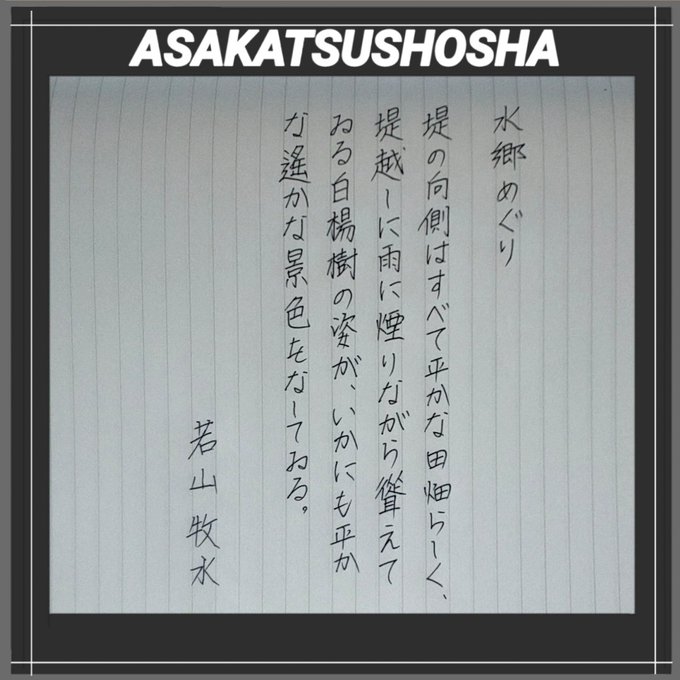 ASAKATSUSHOSHA
水郷めぐり
堤の向側はすべて平かな田畑らしく、
堤越しに雨に煙りながら聳えて
ゐる白楊樹の姿が、いかにも平か
な遙かな景色をなしてゐる。
若山牧水